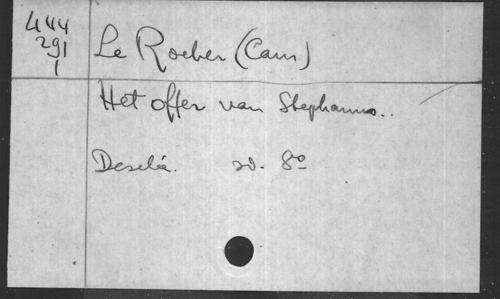 444
291
1
Le Roeber (Cam)
Het offer van Stephanus..
Desclée. sd. 8º